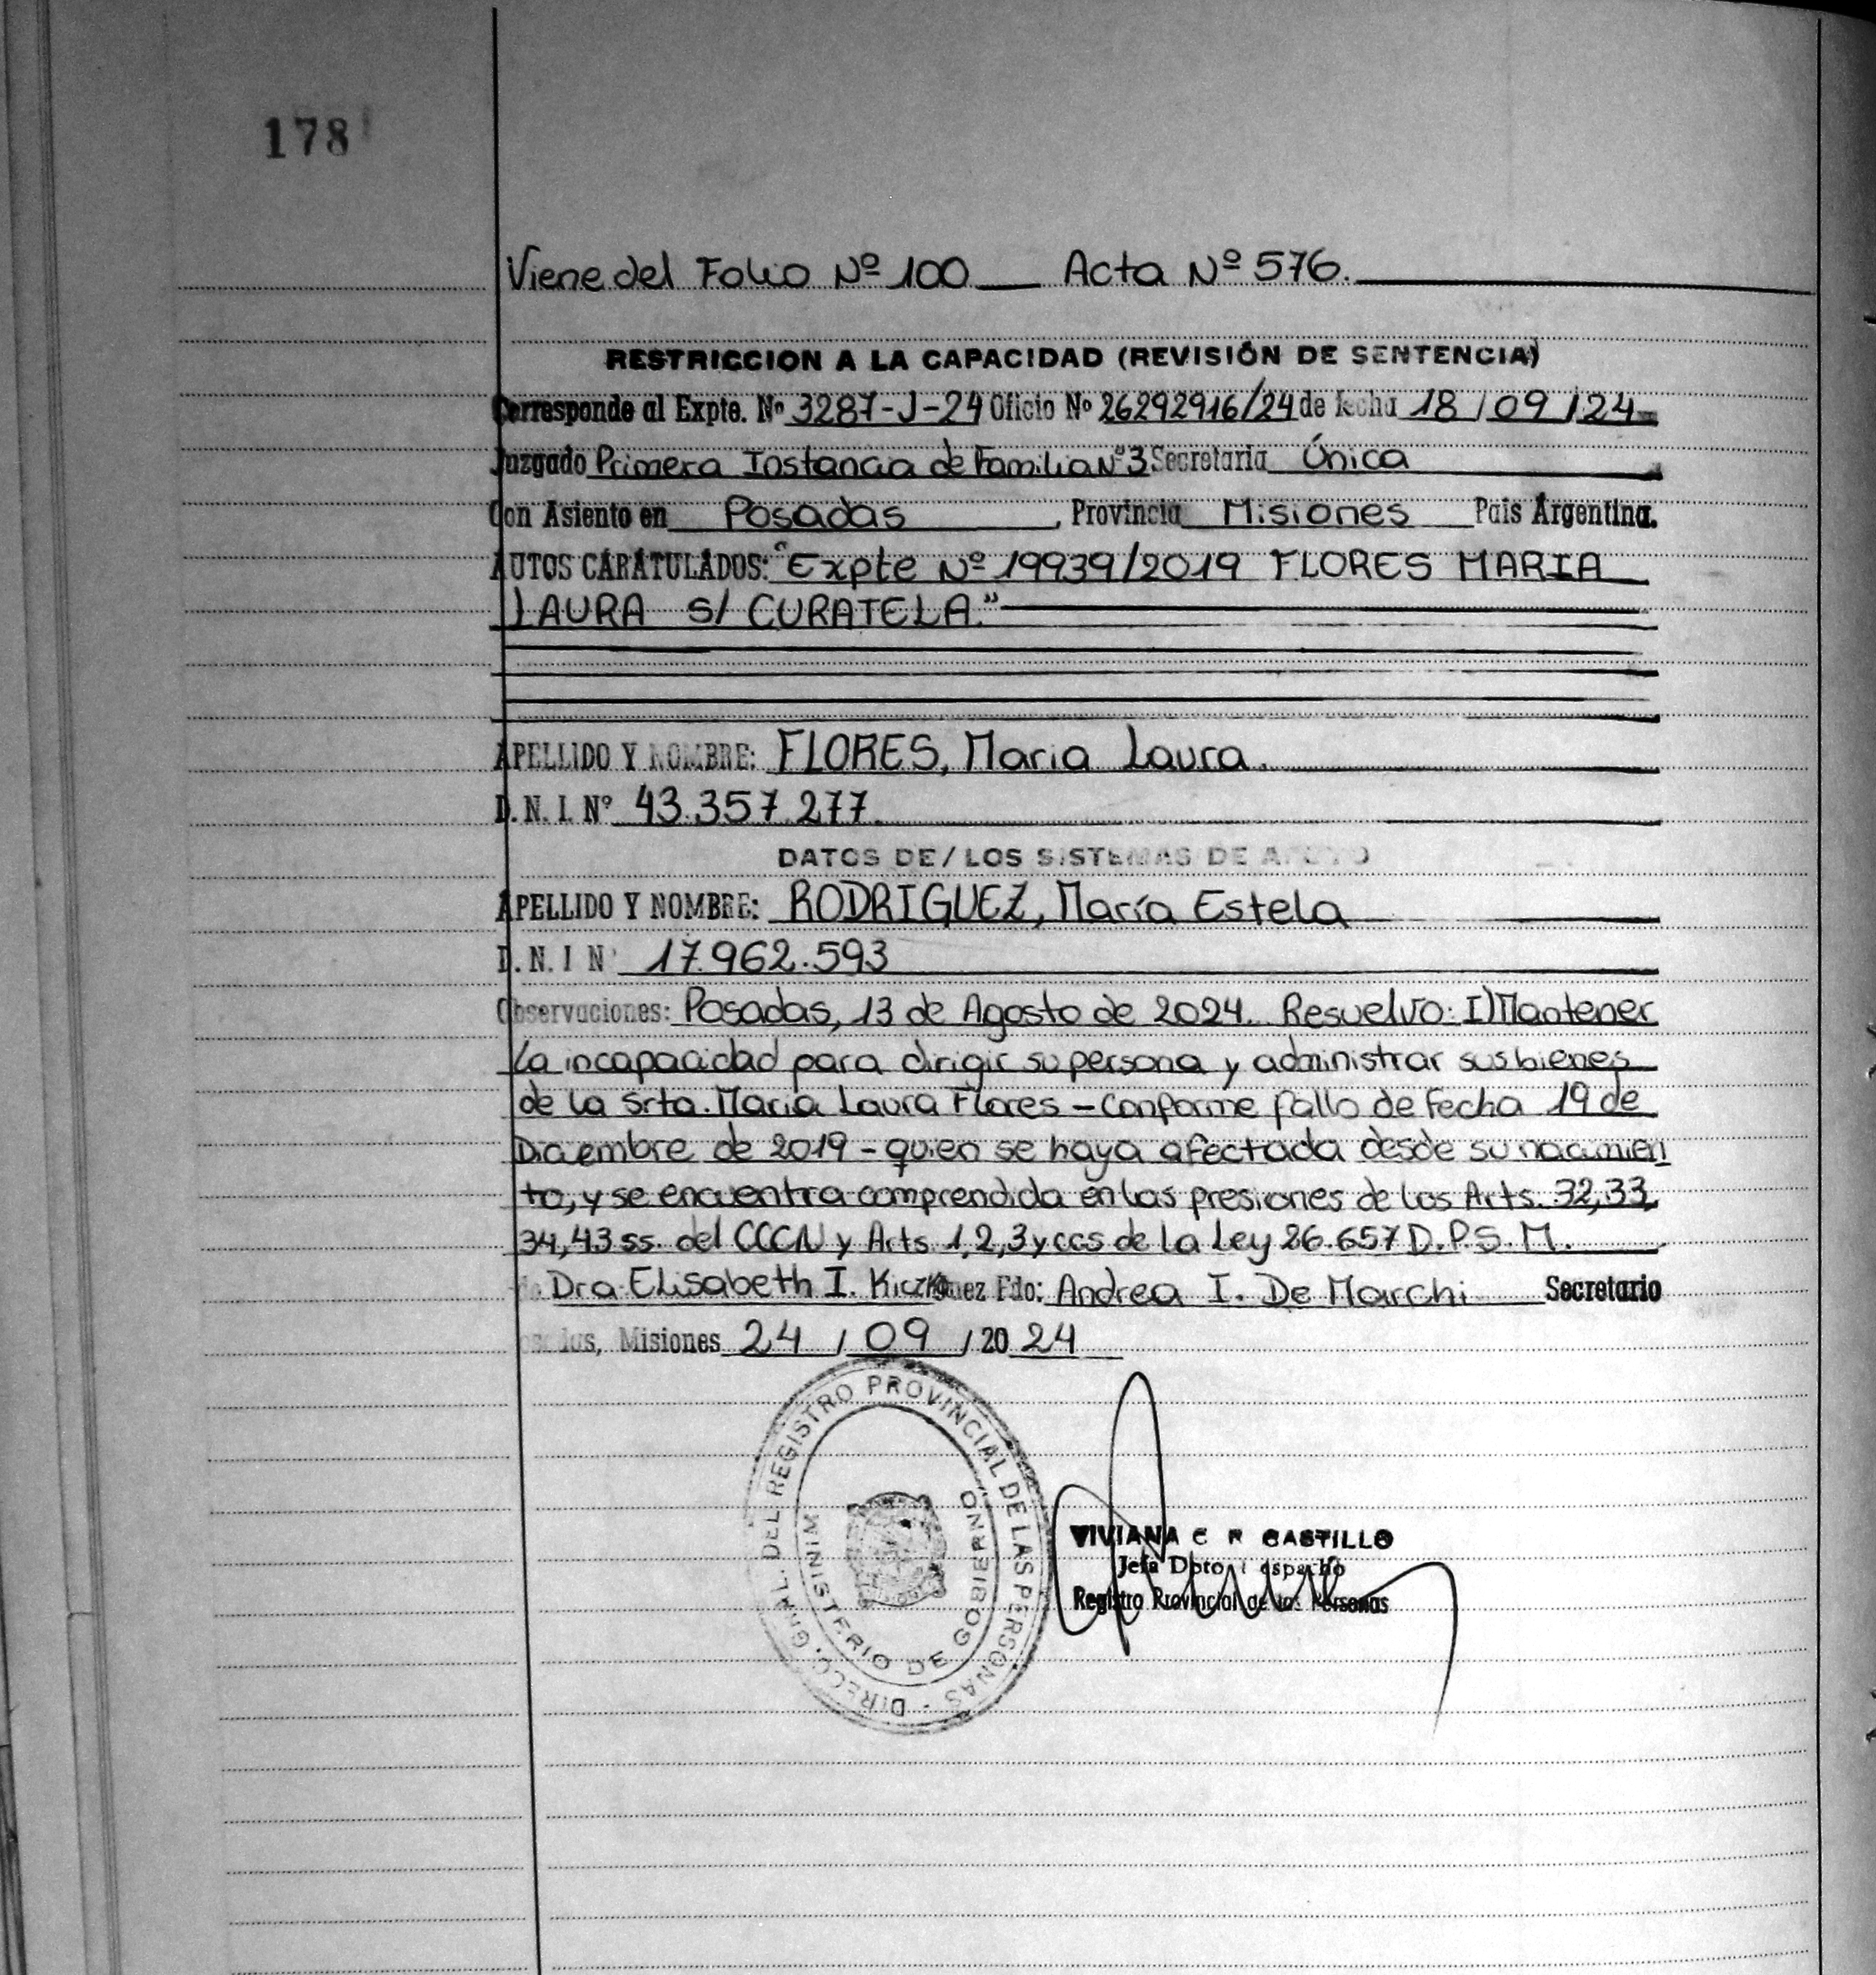 178
Viene del Folio Nº 100 Acta Nº 576.
RESTRICCION A LA CAPACIDAD (REVISIÓN DE SENTENCIA)
Corresponde al Expte. Nº 3287-J-24 Oficio Nº 26292916/24 de fecha 18/09/24
Juzgado Primera Instancia de Familia Nº3 Secretaria Única
Con Asiento en Posadas, Provincia Misiones Pais Argentina.
AUTOS CARATULADOS: "Expte Nº 19939/2019 FLORES MARIA
LAURA S/ CURATELA."
APELLIDO Y NOMBRE: FLORES, Maria Laura.
D.N.I. Nº 43.357.277.
DATOS DE/LOS SISTEMAS DE APOYO
APELLIDO Y NOMBRE: RODRIGUEZ, María Estela
D.N.I Nº 17.962.593
Observaciones: Posadas, 13 de Agosto de 2024. Resuelvo: I) Mantener
la incapacidad para dirigir su persona y administrar sus bienes
de la Srta. Maria Laura Flores – Conforme fallo de fecha 19 de
Diciembre de 2019 – quien se haya afectada desde su nacimien
to, y se encuentra comprendida en las presiones de los Arts. 32,33,
34,43 ss. del CCCN y Arts. 1,2,3 y ccs de la Ley 26.657 D.P.S.M.
Dra Elisabeth I. Juez Fdo: Andrea I. De Marchi Secretario
Posadas, Misiones 24/09/2024
DIRECC. GRAL. DEL REGISTRO PROVINCIAL DE LAS PERSONAS -
MINISTERIO DE GOBIERNO
VIVIANA C R CASTILLO
Jefa Dpto Despacho
Registro Provincial de las Personas